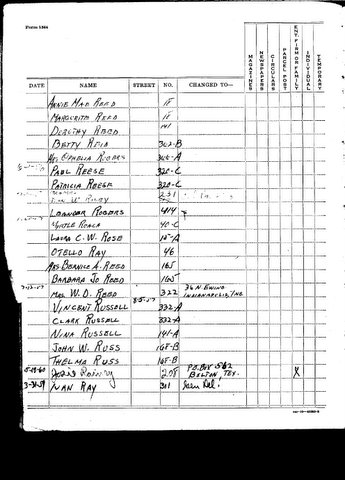 Form 1564
DATE NAME STREET NO. CHANGED TO— MAGAZINES NEWSPAPERS CIRCULARS PARCEL POST ENT. FIRM OR FAMILY INDIVIDUAL TEMPORARY
ANNIE MAE REED 18
MARGUERITE REED 18
DOROTHY REED 141
BETTY REID 302-B
MRS. OPHELIA ROGERS 304-A
PAUL REESE 320-C
PATRICIA REESE 320-C
231
LEANDER ROGERS 414
40-C
LAURA C. W. ROSE 15-A
OTELLO RAY 46
MRS BERNICE A. REED 165
BARBARA JO REED 165
MRS. W. D. REED 322 36 N. EWING INDIANAPOLIS, IND
VINCENT RUSSELL 8-5-57 332-A
CLARK RUSSELL 332-A
NINA RUSSELL 141-A
JOHN W. RUSS 165-B
THELMA RUSS 165-B
278 P.O. BOX 562
BELTON, TEX. X
3-31-59 IVAN RAY 311 Gen Del.